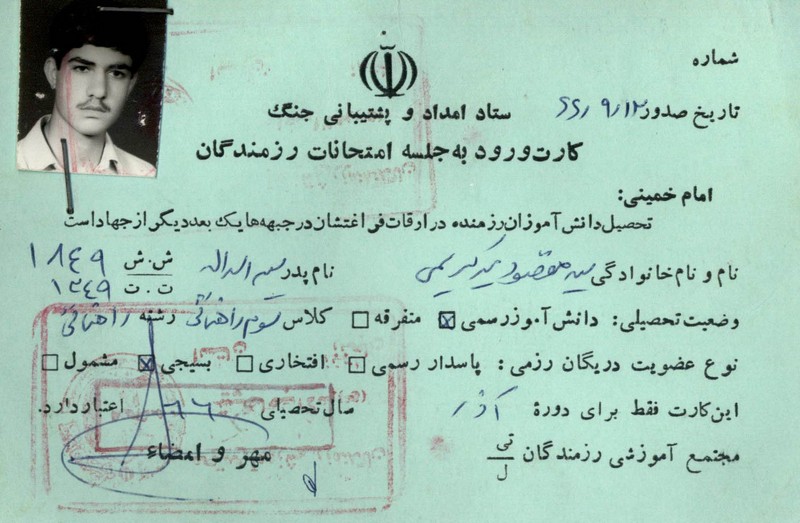 شماره
تاریخ صدور ۶۶/۹/۱۲
ستاد امداد و پشتیبانی جنگ
کارت ورود به جلسه امتحانات رزمندگان
امام خمینی:
تحصیل دانش آموزان رزمنده در اوقات فراغتشان در جبهه‌ها یک بعد دیگر از جهاد است
نام و نام خانوادگی سید مقصود میرکریمی نام پدر سید اسداله ش.ش ۱۸۴۹
ت.ت ۱۳۴۹
وضعیت تحصیلی: دانش آموز رسمی ☒ متفرقه □ کلاس سوم راهنمائی رشته راهنمائی
نوع عضویت در یگان رزمی: پاسدار رسمی □ افتخاری □ بسیجی ☒ مشمول □
این کارت فقط برای دورهٔ آذر سال تحصیلی ۶۶ اعتبار دارد.
مجتمع آموزشی رزمندگان تی / ل
مهر و امضاء